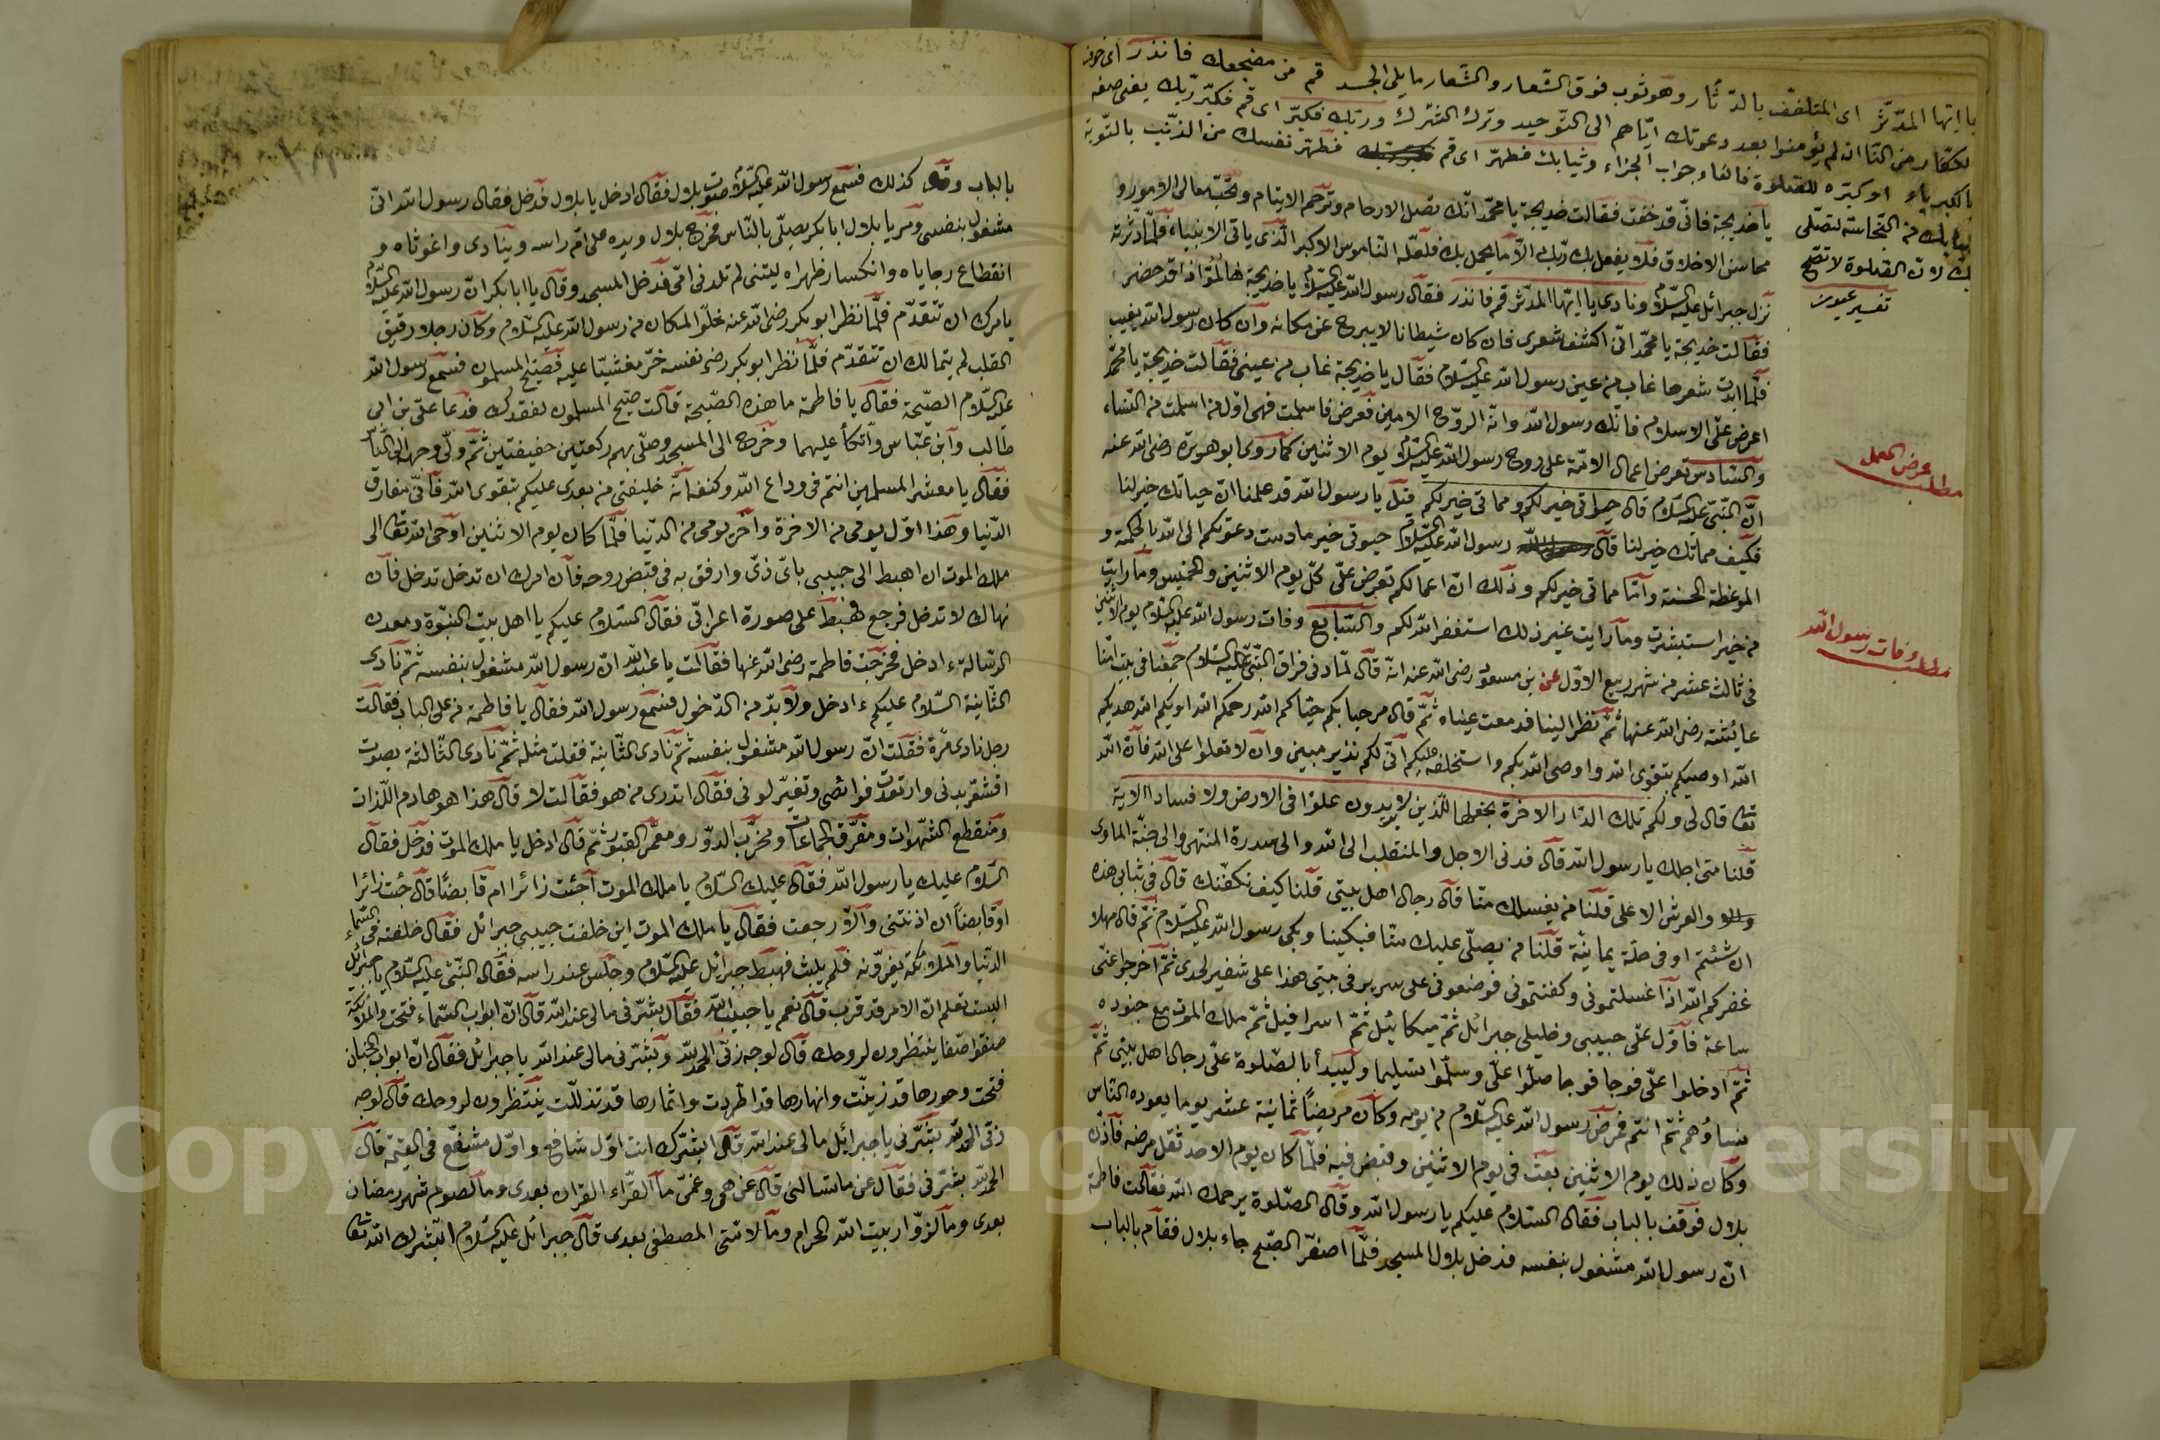 يا ايها المدّثر اى المتلفّف بالدّثار وهو ثوب فوق الشّعار والشّعار ما يلى الجسد قم من مضجعك فانذر اى خوف
الكفّار من النّار ان لم يؤمنوا بعد دعوتك ايّاهم الى التّوحيد وترك الشّرك وربّك فكبّر اى قم فكبّر ربّك يعنى صفه
بالكبرياء او كبّره للصّلوة فالفاء جواب الجزاء وثيابك فطهّر اى قم فطهّر نفسك من الذّنب بالتّوبة
ثيابك من النّجاسة لتصلّى
بك لانّ الصّلوة لا تصحّ
تفسير عيون
يا خديجة فانّى قد خفت فقالت خديجة يا محمّد انّك تصل الارحام وترحم الايتام وتحبّ معالى الامور و
محاسن الاخلاق فلا يفعل بك ربّك الّا ما يجمل بك فلعلّه النّاموس الاكبر الّذى ياتى الانبياء فلمّا دثّرته
نزل جبرائل عليه السّلام ونادى يا ايّها المدّثر قم فانذر فقال رسول الله عليه السّلام يا خديجة ها هو اذا قد حضر
فقالت خديجة يا محمّد انّى اكشف شعرى فان كان شيطانا لا يبرح عن مكانه وان كان رسول الله يغيب
فلمّا ابدت شعرها غاب من عين رسول الله عليه السّلام فقال يا خديجة غاب من عينى فقالت خديجة يا محمّد
اعرض علىّ الاسلام فانّك رسول الله وانّه الروّح الامين فعرض فاسلمت فهى اوّل من اسلمت من النّساء
والسّادس تعرض اعمال الامّة على روح رسول الله عليه السّلام يوم الاثنين كما روى ابو هريرة رضى الله عنه
مطلب عرض العمل
انّ النّبىّ عليه السّلام قال حيواتى خير لكم ومماتى خير لكم قيل يا رسول الله قد علمنا انّ حياتك خير لنا
فكيف مماتك خير لنا قال رسول الله عليه السّلام حيوتى خير ما دمت دعوتكم الى الله بالحكمة و
الموعظة الحسنة وامّا مماتى خير لكم وذلك انّ اعمالكم تعرض علىّ كلّ يوم الاثنين والخميس وما رايت
من خير استبشرت وما رايت غير ذلك استغفر الله لكم والسّابع وفات رسول الله عليه السّلام يوم الاثنين
مطلب وفات رسول الله
فى ثالث عشر من شهر ربيع الاوّل عن بن مسعود رضى الله عنه انّه قال لمّا دنى فراق النّبىّ عليه السّلام جمعنا فى بيت امّنا
عايشة رضى الله عنها ثمّ نظر الينا فدمعت عيناه ثمّ قال مرحبا بكم حيّاكم الله رحمكم الله اويكم الله هديكم
الله اوصيكم بتقوى الله واوصى الله بكم واستخلفه عليكم انّى لكم نذير مبين وان لا تعلوا على الله فانّ الله
تعا قال لى ولكم تلك الدّار الاخرة نجعلها للّذين لا يريدون علوّا فى الارض ولا فسادا الاية
قلنا متى اجلك يا رسول الله قال قد دنى الاجل والمنقلب الى الله والى سدرة المنتهى والى جنّة الماوى
والعرش الاعلى قلنا من يغسلك منّا قال رجال اهل بيتى قلنا كيف نكفّنك قال فى ثيابى هذه
ان شئتم او فى حلّة يمانيّة قلنا من يصلّى عليك منّا فبكينا وبكى رسول الله عليه السّلام ثمّ قال مهلا
غفركم الله اذا غسلتمونى وكفنتمونى فوضعونى على سرير فى بيتى هذا على شفير لحدى ثمّ اخرجوا عنّى
ساعة فاوّل علىّ حبيبى وخليلى جبرائل ثمّ ميكائيل ثمّ اسرافيل ثمّ ملك الموت مع جنوده
ثمّ ادخلوا علىّ فوجا فوجا صلّوا علىّ وسلّموا تسليما وليبدأ بالصّلوة علىّ رجال اهل بيتى ثمّ
نساؤهم ثمّ انتم فمرض رسول الله عليه السّلام من يومه وكان مريضًا ثمانية عشر يوما يعوده النّاس
وكان ذلك يوم الاثنين بعث فى يوم الاثنين وقبض فيه فلمّا كان يوم الاحد ثقل مرضه فاذّن
بلال فوقف بالباب فقال السّلام عليكم يا رسول الله وقال الصّلوة يرحمك الله فقالت فاطمة
انّ رسول الله مشغول بنفسه فدخل بلال المسجد فلمّا اصفرّ الصّبح جاء بلال فقام بالباب
بالباب وقال كذلك فسمع رسول الله عليه السّلام صوت بلال فقال ادخل يا بلال فدخل فقال رسول الله انّى
مشغول بنفسى ومر يا بلال ابا بكر يصلّى بالنّاس فخرج بلال ويده على امّ راسه وينادى واغوثاه و
انقطاع رجاياه وانكسار ظهراه ليتنى لم تلدنى امّى فدخل المسجد وقال يا ابا بكر انّ رسول الله عليه السّلام
يامرك ان تتقدّم فلمّا نظر ابو بكر رضى الله عنه خلوّ المكان من رسول الله عليه السّلام وكان رجلا رقيق
القلب لم يتمالك ان تتقدّم فلمّا نظر ابو بكر رض نفسه خرّ مغشيّا عليه فصيّح المسلمون فسمع رسول الله
عليه السّلام الصّيحة فقال يا فاطمة ما هذه الصّيحة قالت صيّح المسلمون لفقدك فدعا علىّ بن ابى
طالب وابن عبّاس واتّكأ عليهما وخرج الى المسجد وصلّى بهم ركعتين خفيفتين ثمّ ولّى وجهه الى النّاس
فقال يا معشر المسلمين انتم فى وداع الله وكنفه انّه خليفتى من بعدى عليكم بتقوى الله فانّى مفارق
الدّنيا وهذا اوّل يومى من الاخرة واخر يومى من الدّنيا فلمّا كان يوم الاثنين اوحى الله تعالى
ملك الموت ان اهبط الى حبيبى باىّ زىّ وارفق به فى قبض روحه فان امرك ان تدخل تدخل فان
نهاك لا تدخل فرجع فهبط على صورة اعرابىّ فقال السّلام عليكم يا اهل بيت النّبوّة ومعدن
الرّسالة ءادخل فخرجت فاطمة رضى الله عنها فقالت يا عبد الله انّ رسول الله مشغول بنفسه ثمّ نادى
الثّانية السّلام عليكم ءادخل ولا بدّ من الدّخول فسمع رسول الله فقال يا فاطمة من على الباب فقالت
رجل نادى مرّة فقلت انّ رسول الله مشغول بنفسه ثمّ نادى الثّانية فقلت مثله ثمّ نادى الثّالثة بصوت
اقشعر بدنى وارتعدت فرائصى وتغيّر لونى فقال اتدرى من هو فقالت لا قال هذا هو هادم اللّذات
ومنقطع الشّهوات ومفرّق الجماعات ومخرّب الدّور ومعمّر القبور ثمّ قال ادخل يا ملك الموت فدخل فقال
السّلام عليك يا رسول الله فقال عليك السّلام يا ملك الموت أجئت زائرا ام قابضًا قال جئت زائرا
او قابضًا ان اذنتنى والّا رجعت فقال يا ملك الموت اين خلفت حبيبى جبرائل فقال خلفته فى السّماء
الدّنيا والملائكة يعزّونه فلم يلبث فهبط جبرائل عليه السّلام وجلس عند راسه فقال النّبىّ عليه السّلام يا جبرئل
الست تعلم انّ الامر قد قرب قال نعم يا حبيب الله فقال بشّرنى ما لى عند الله قال انّ ابواب السّماء فتحت والملائكة
صفّوا صفّا ينتظرون لروحك قال لوجه ربّى الحمد لله وبشّرنى ما لى عند الله يا جبرائل فقال انّ ابواب الجنان
فتحت وحورها قد زيّنت وانهارها قد اطّردت واثمارها قد تذلّلت ينتظرون لروحك قال لوجه
ربّى الحمد لله بشّرنى يا جبرائل ما لى عند الله قال ابشّرك انت اوّل شافع واوّل مشفّع فى القيمة قال
الحمد لله بشّرنى فقال عن ما تسالنى قال عن همّى وغمّى ما لقرّاء القران بعدى وما لصوم شهر رمضان
بعدى وما لزوّار بيت الله الحرام وما لامّتى المصطفى بعدى قال جبرائل عليه السّلام ابشرك الله تعا
Copyright © King Saud University